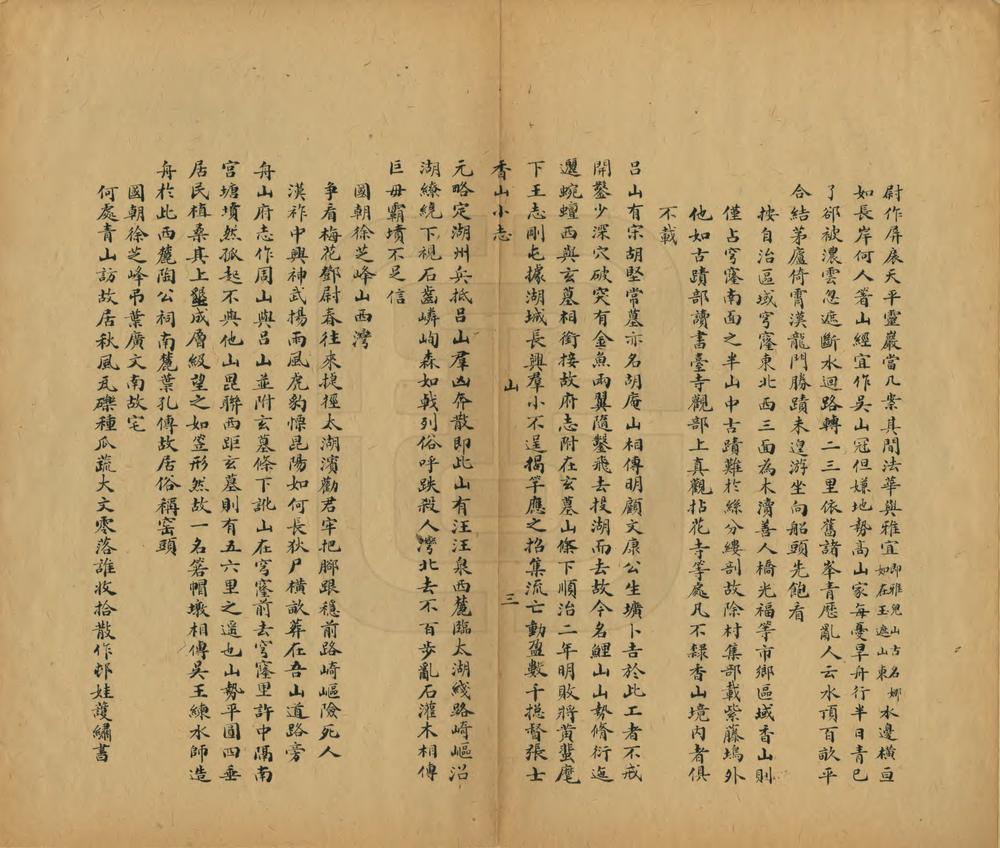 尉作屏展天平靈巖當几案其間法華與雅宜即雅兒山古名娜如在王遮山東水邊橫亘
如長岸何人著山經宜作吳山冠但嫌地勢高山家每憂旱舟行半日青已
了郤被濃雲忽遮斷水迴路轉二三里依舊諸峯青歷亂人云水頂百畝平
合結茅廬倚霄漢龍門勝蹟未遑游坐向船頭先飽看
按自治區域穹窿東北西三面為木瀆善人橋光福等市鄉區域香山則
僅占穹窿南面之半山中古蹟難於絲分縷剖故除村集部載紫藤塢外
他如古蹟部讀書臺寺觀部上真觀拈花寺等處凡不隸香山境內者俱
不載
呂山有宗胡堅常墓亦名胡庵山相傳明顧文康公生壙卜吉於此工者不戒
開鑿少深穴破突有金魚兩翼隨鑿飛去投湖而去故今名鯉山山勢脩衍迤
邐蜿蟺西與玄墓相銜接故府志附在玄墓山條下順治二年明敗將黃蜚麾
下王志剛屯據湖城長興羣小不逞揭竿應之招集流亡動盈數千摠督張士
香山小志 山 三
元略定湖州兵抵呂山羣凶奔散即此山有汪汪泉西麓臨太湖綫路崎嶇沿
湖繚繞下視石齒嶙峋森如戟列俗呼跌殺人灣北去不百步亂石灌木相傳
巨毋霸墳不足信
國朝徐芝峰山西灣
爭看梅花鄧尉春往來捷徑太湖濱勸君牢把腳跟穩前路崎嶇險死人
漢祚中興神武揚雨風虎豹慄昆陽如何長狄尸橫畝葬在吾山道路旁
舟山府志作周山與呂山並附玄墓條下訛山在穹窿前去穹窿里許中隔南
宮塘墳然孤起不與他山毘聯西距玄墓則有五六里之遥也山勢平圓四垂
居民植桑其上壟成層級望之如笠形然故一名箬帽墩相傳吳王練水師造
舟於此西麓陶公祠南麓葉孔傳故居俗稱窑頭
國朝徐芝峰弔葉廣文南故宅
何處青山訪故居秋風瓦礫種瓜蔬大文零落誰收拾散作邨娃護繡書